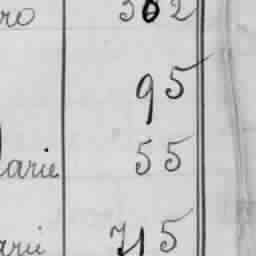 ro 302
95
arie 55
arie 715